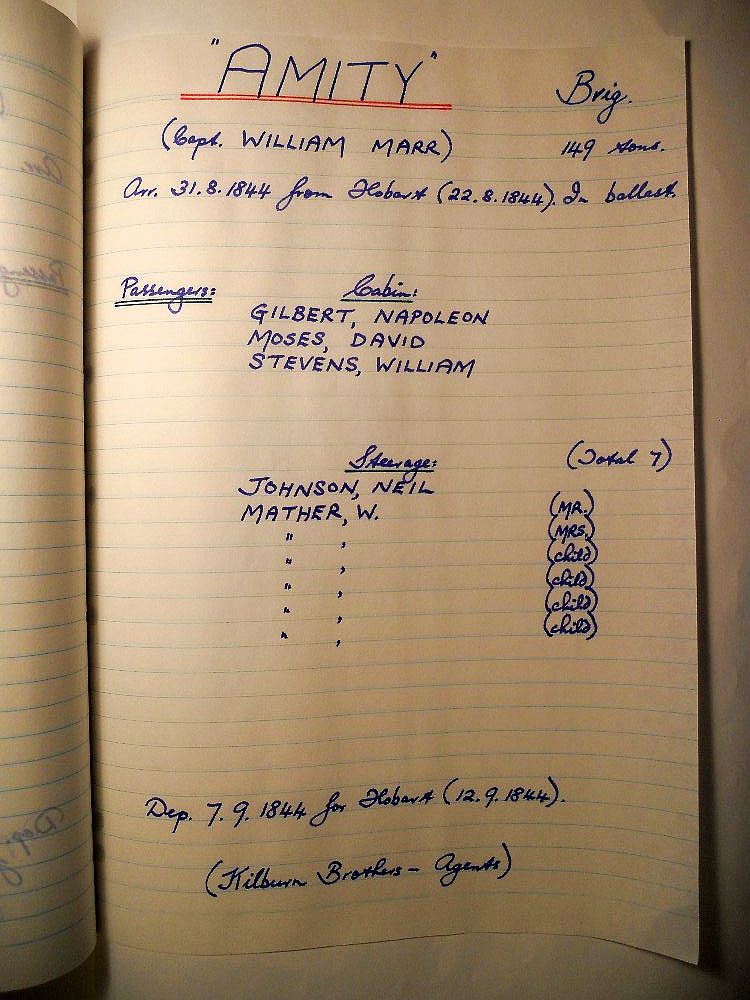 "AMITY" Brig.
(Capt. WILLIAM MARR) 149 tons.
Arr. 31.8.1844 from Hobart (22.8.1844). In ballast.
Passengers: Cabin:
GILBERT, NAPOLEON
MOSES, DAVID
STEVENS, WILLIAM
Steerage: (Total 7)
JOHNSON, NEIL
MATHER, W. (MR.)
" , (MRS.)
" , (child)
" , (child)
" , (child)
" , (child)
Dep. 7.9.1844 for Hobart (12.9.1844).
(Kilburn Brothers - Agents)